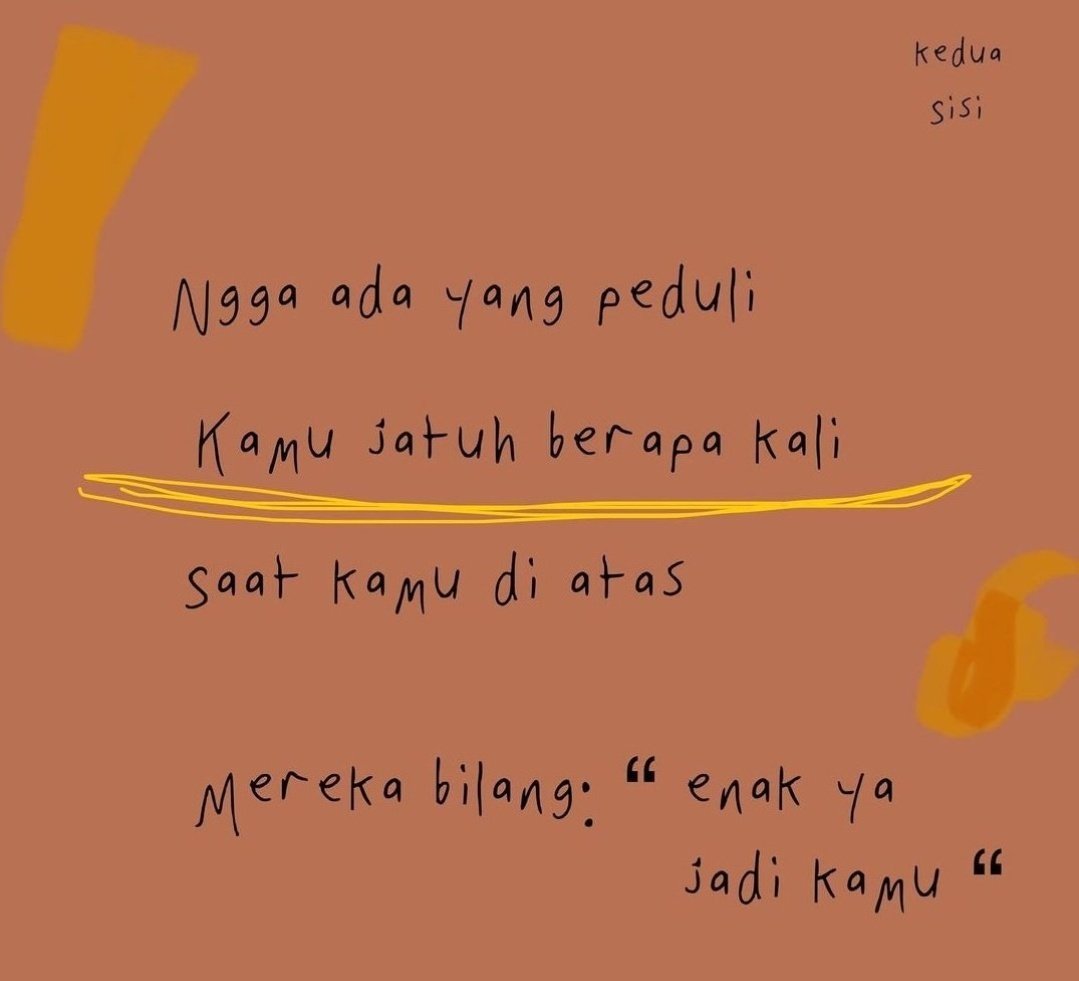 kedua
sisi
Ngga ada yang peduli
Kamu jatuh berapa kali
saat kamu di atas
Mereka bilang: “ enak ya
jadi kamu “